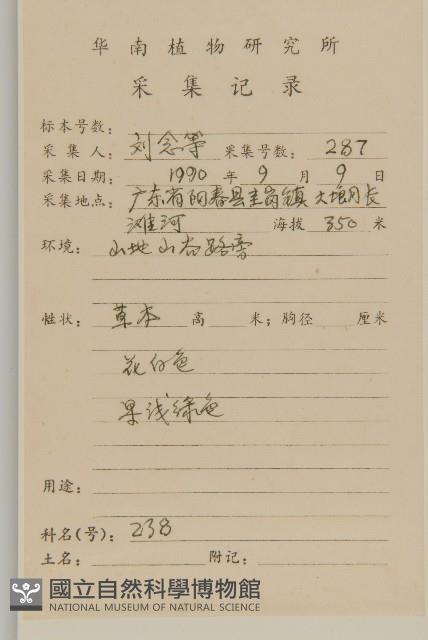 华南植物研究所
采集记录
标本号数：
采集人：刘念等 采集号数：287
采集日期：1990年9月9日
采集地点：广东省阳春县圭岗镇大垠月长
滩河 海拔 350 米
环境：山地山谷路旁
性状：草本 高 米；胸径 厘米
花白色
果浅绿色
用途：
科名(号)：238
土名： 附记：
國立自然科學博物館
NATIONAL MUSEUM OF NATURAL SCIENCE